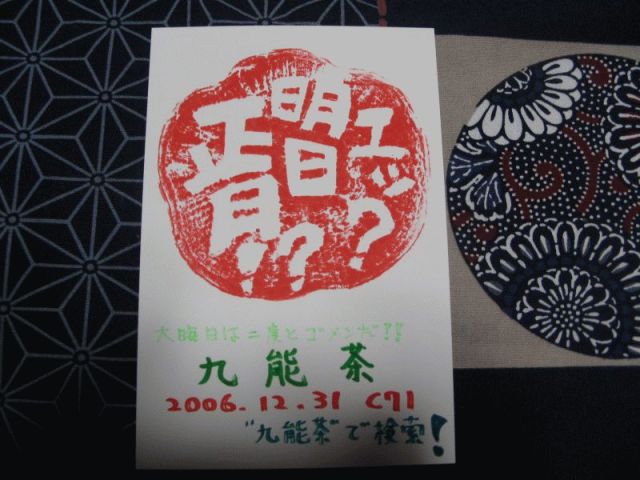 エッ?
明日??
正月??
大晦日は二度とゴメンだ!!
九能茶
2006.12.31 C71
"九能茶"で検索!